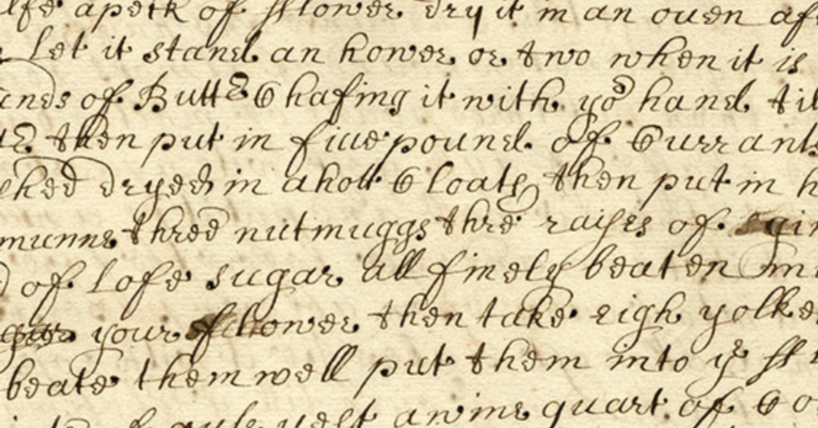 apeck of fflower dry it in an ouen
Let it stand an hower or two when it is
of Butte Chafing it with yor hand
then put in fiue pound of Currants
dryed in a hott Cloath then put in
three nutmuggs thre raises of
of lofe sugar all finely beaten
your fflower then take eigh yolke
beate them well put them into ye
yest a wine quart of